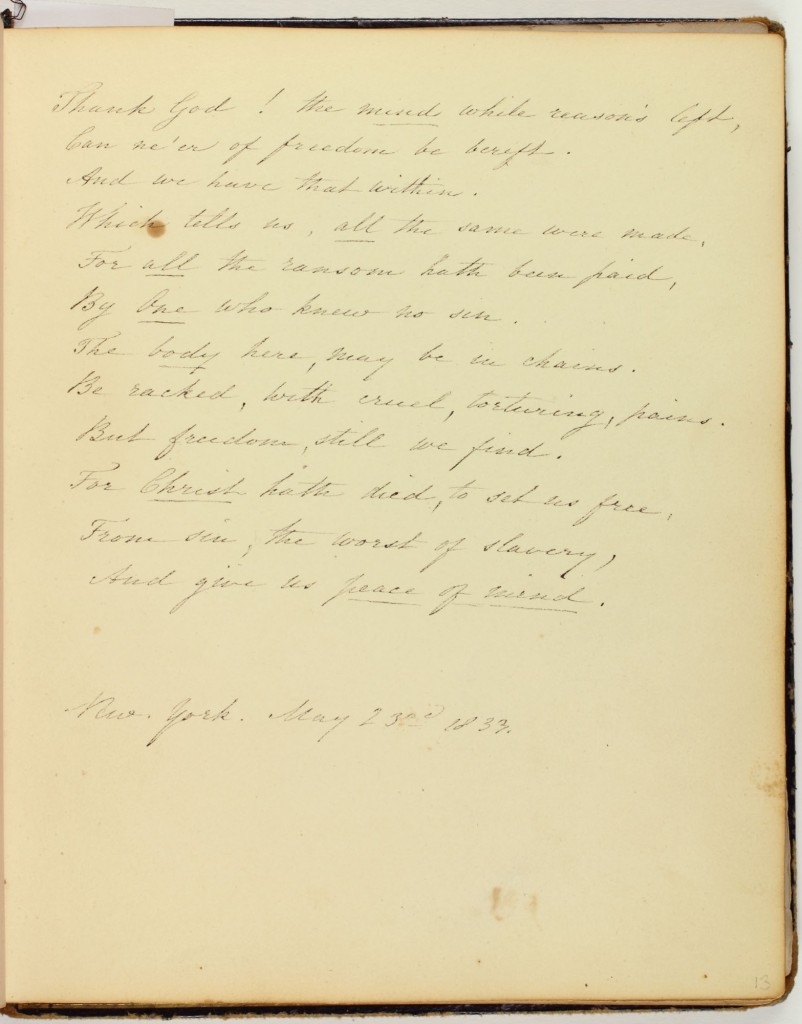 Thank God ! the mind while reason's left,
Can ne'er of freedom be bereft.
And we have that within.
Which tells us, all the same were made,
For all the ransom hath been paid,
By One who knew no sin.
The body here, may be in chains.
Be racked, with cruel, torturing, pains.
But freedom, still we find.
For Christ hath died, to set us free,
From sin, the worst of slavery,
And give us peace of mind.
New. York. May 23rd 1833.
13